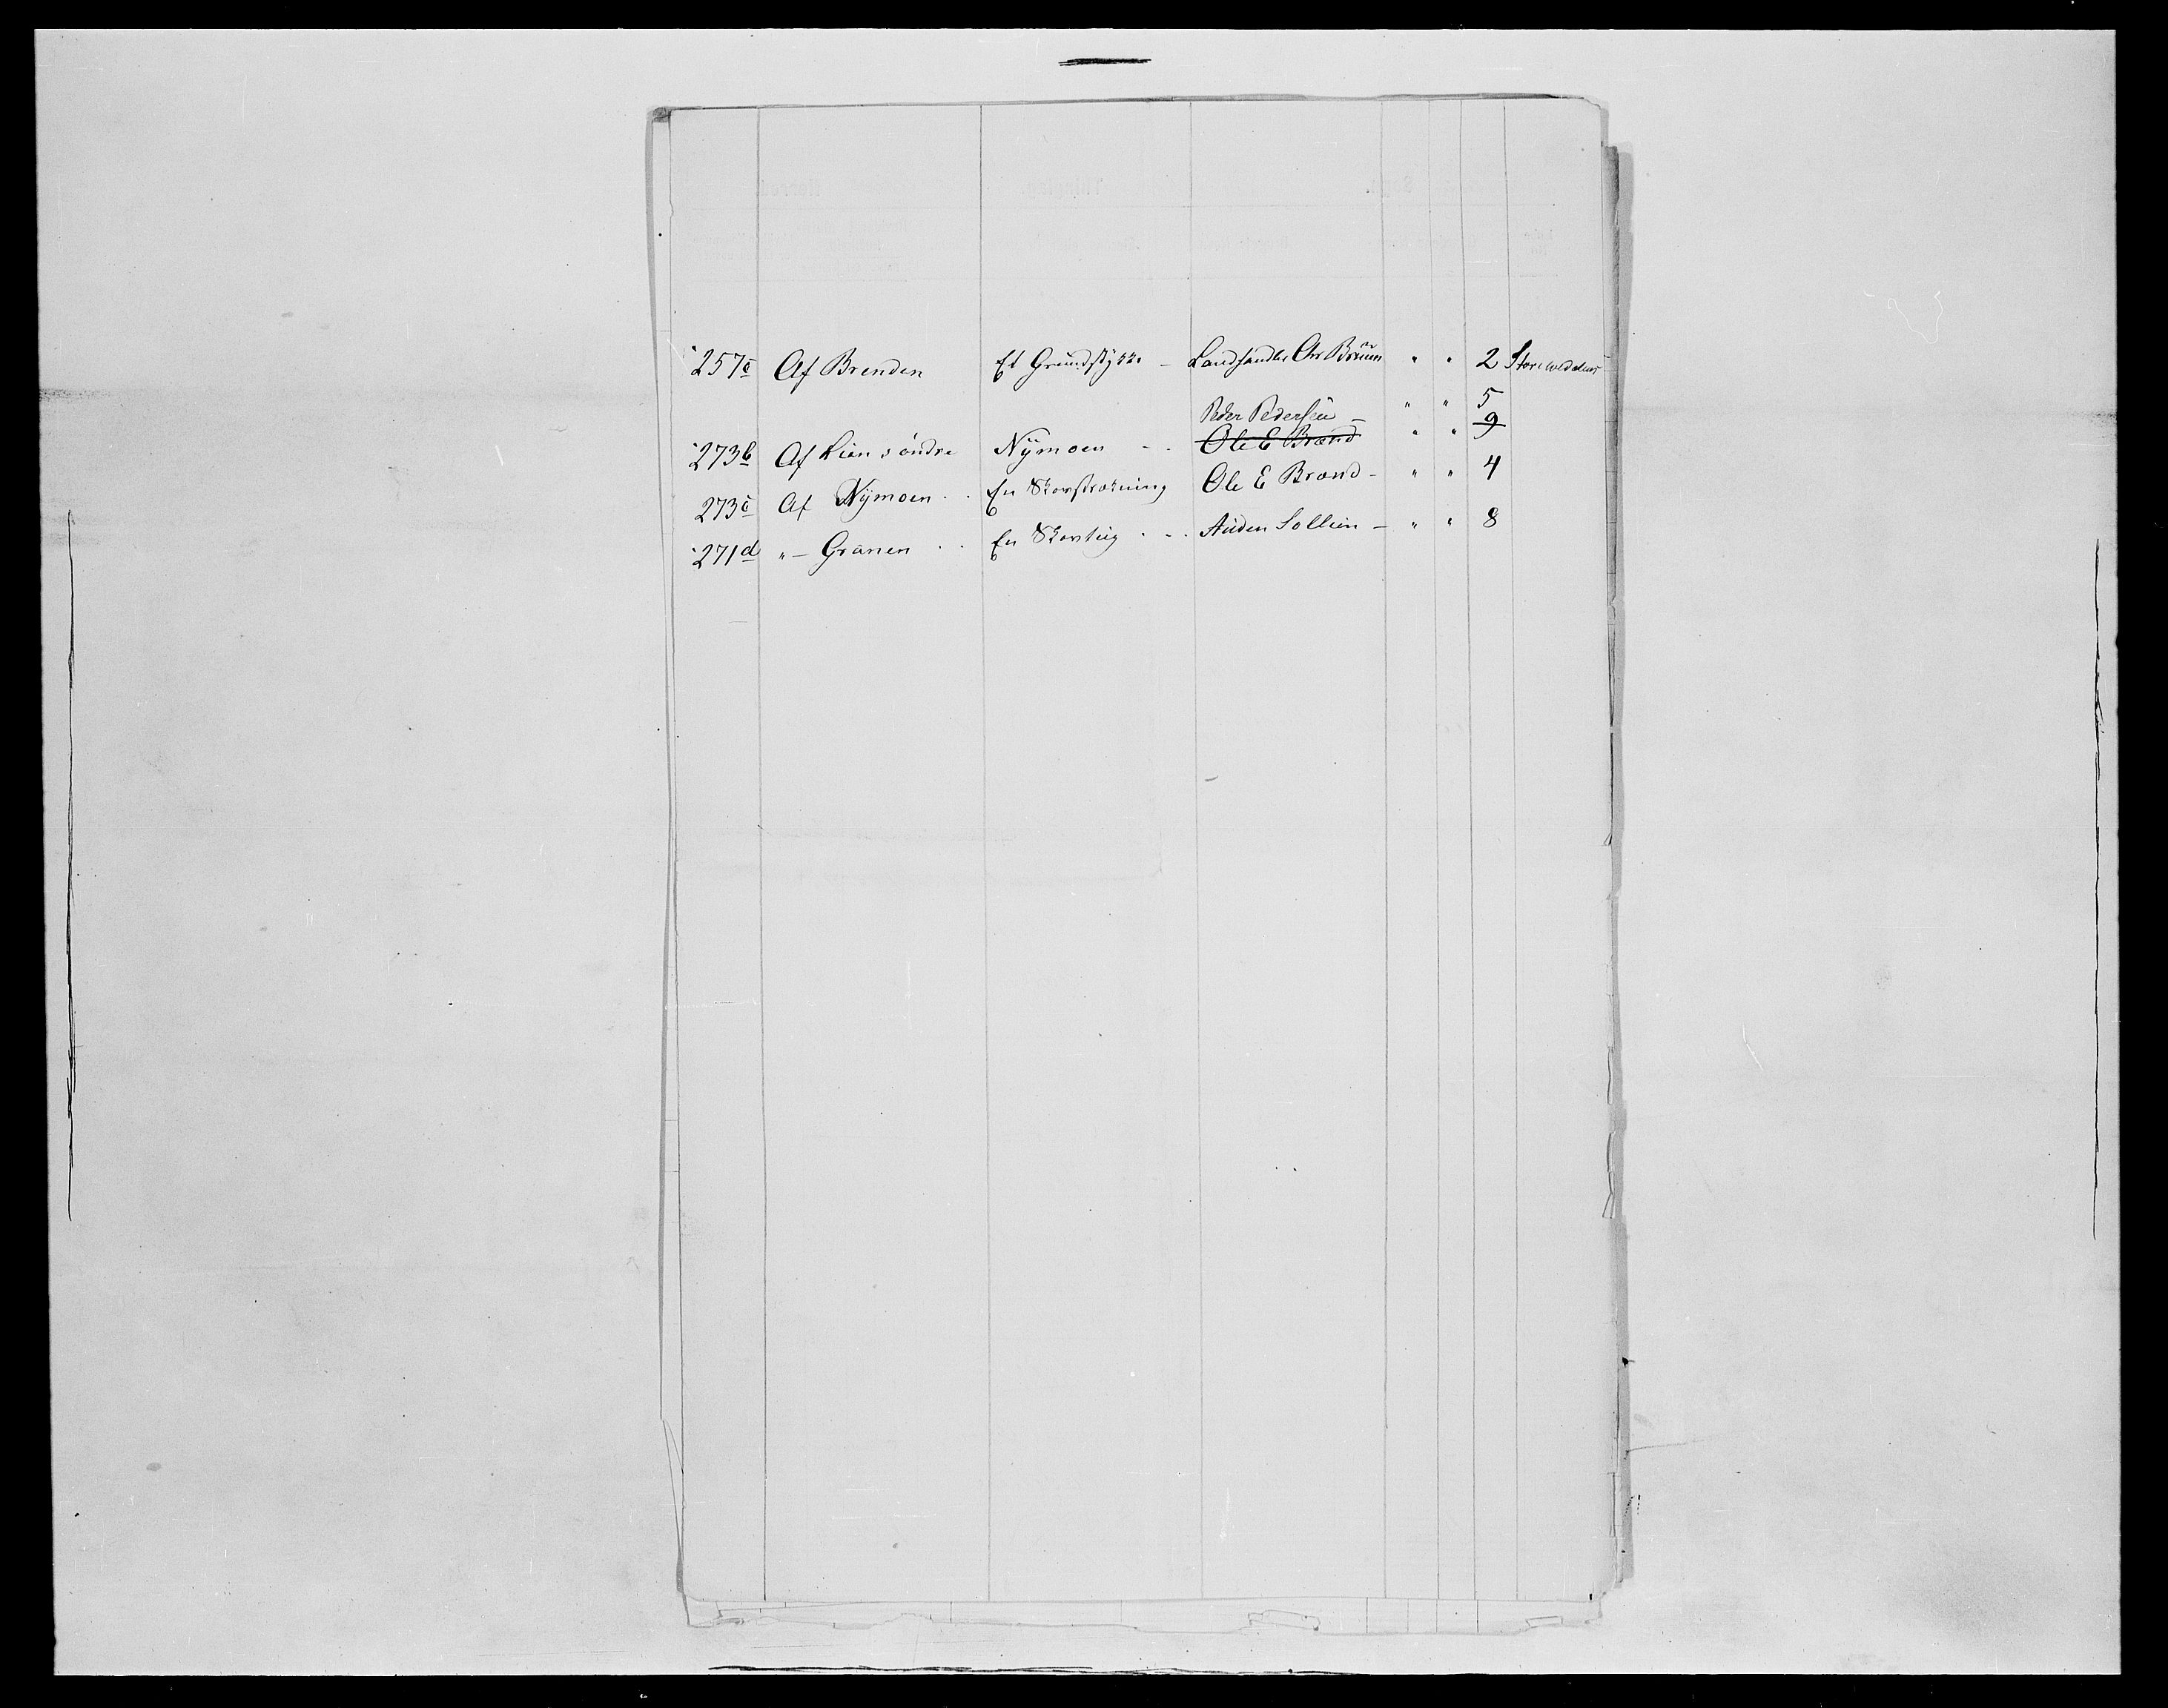 257c Af Brenden Et Grundstykke - Landhandler Chr Bruun " " 2
Peder Pedersen - " " 5
273b Af Lien søndre Nymoen - - Ole E Brænd " " 9
273c Af Nymoen - - En Skovstrækning Ole E Brænd - " " 4
271d " - Granen - - En Skovteig - - - Auden Sollien - " " 8